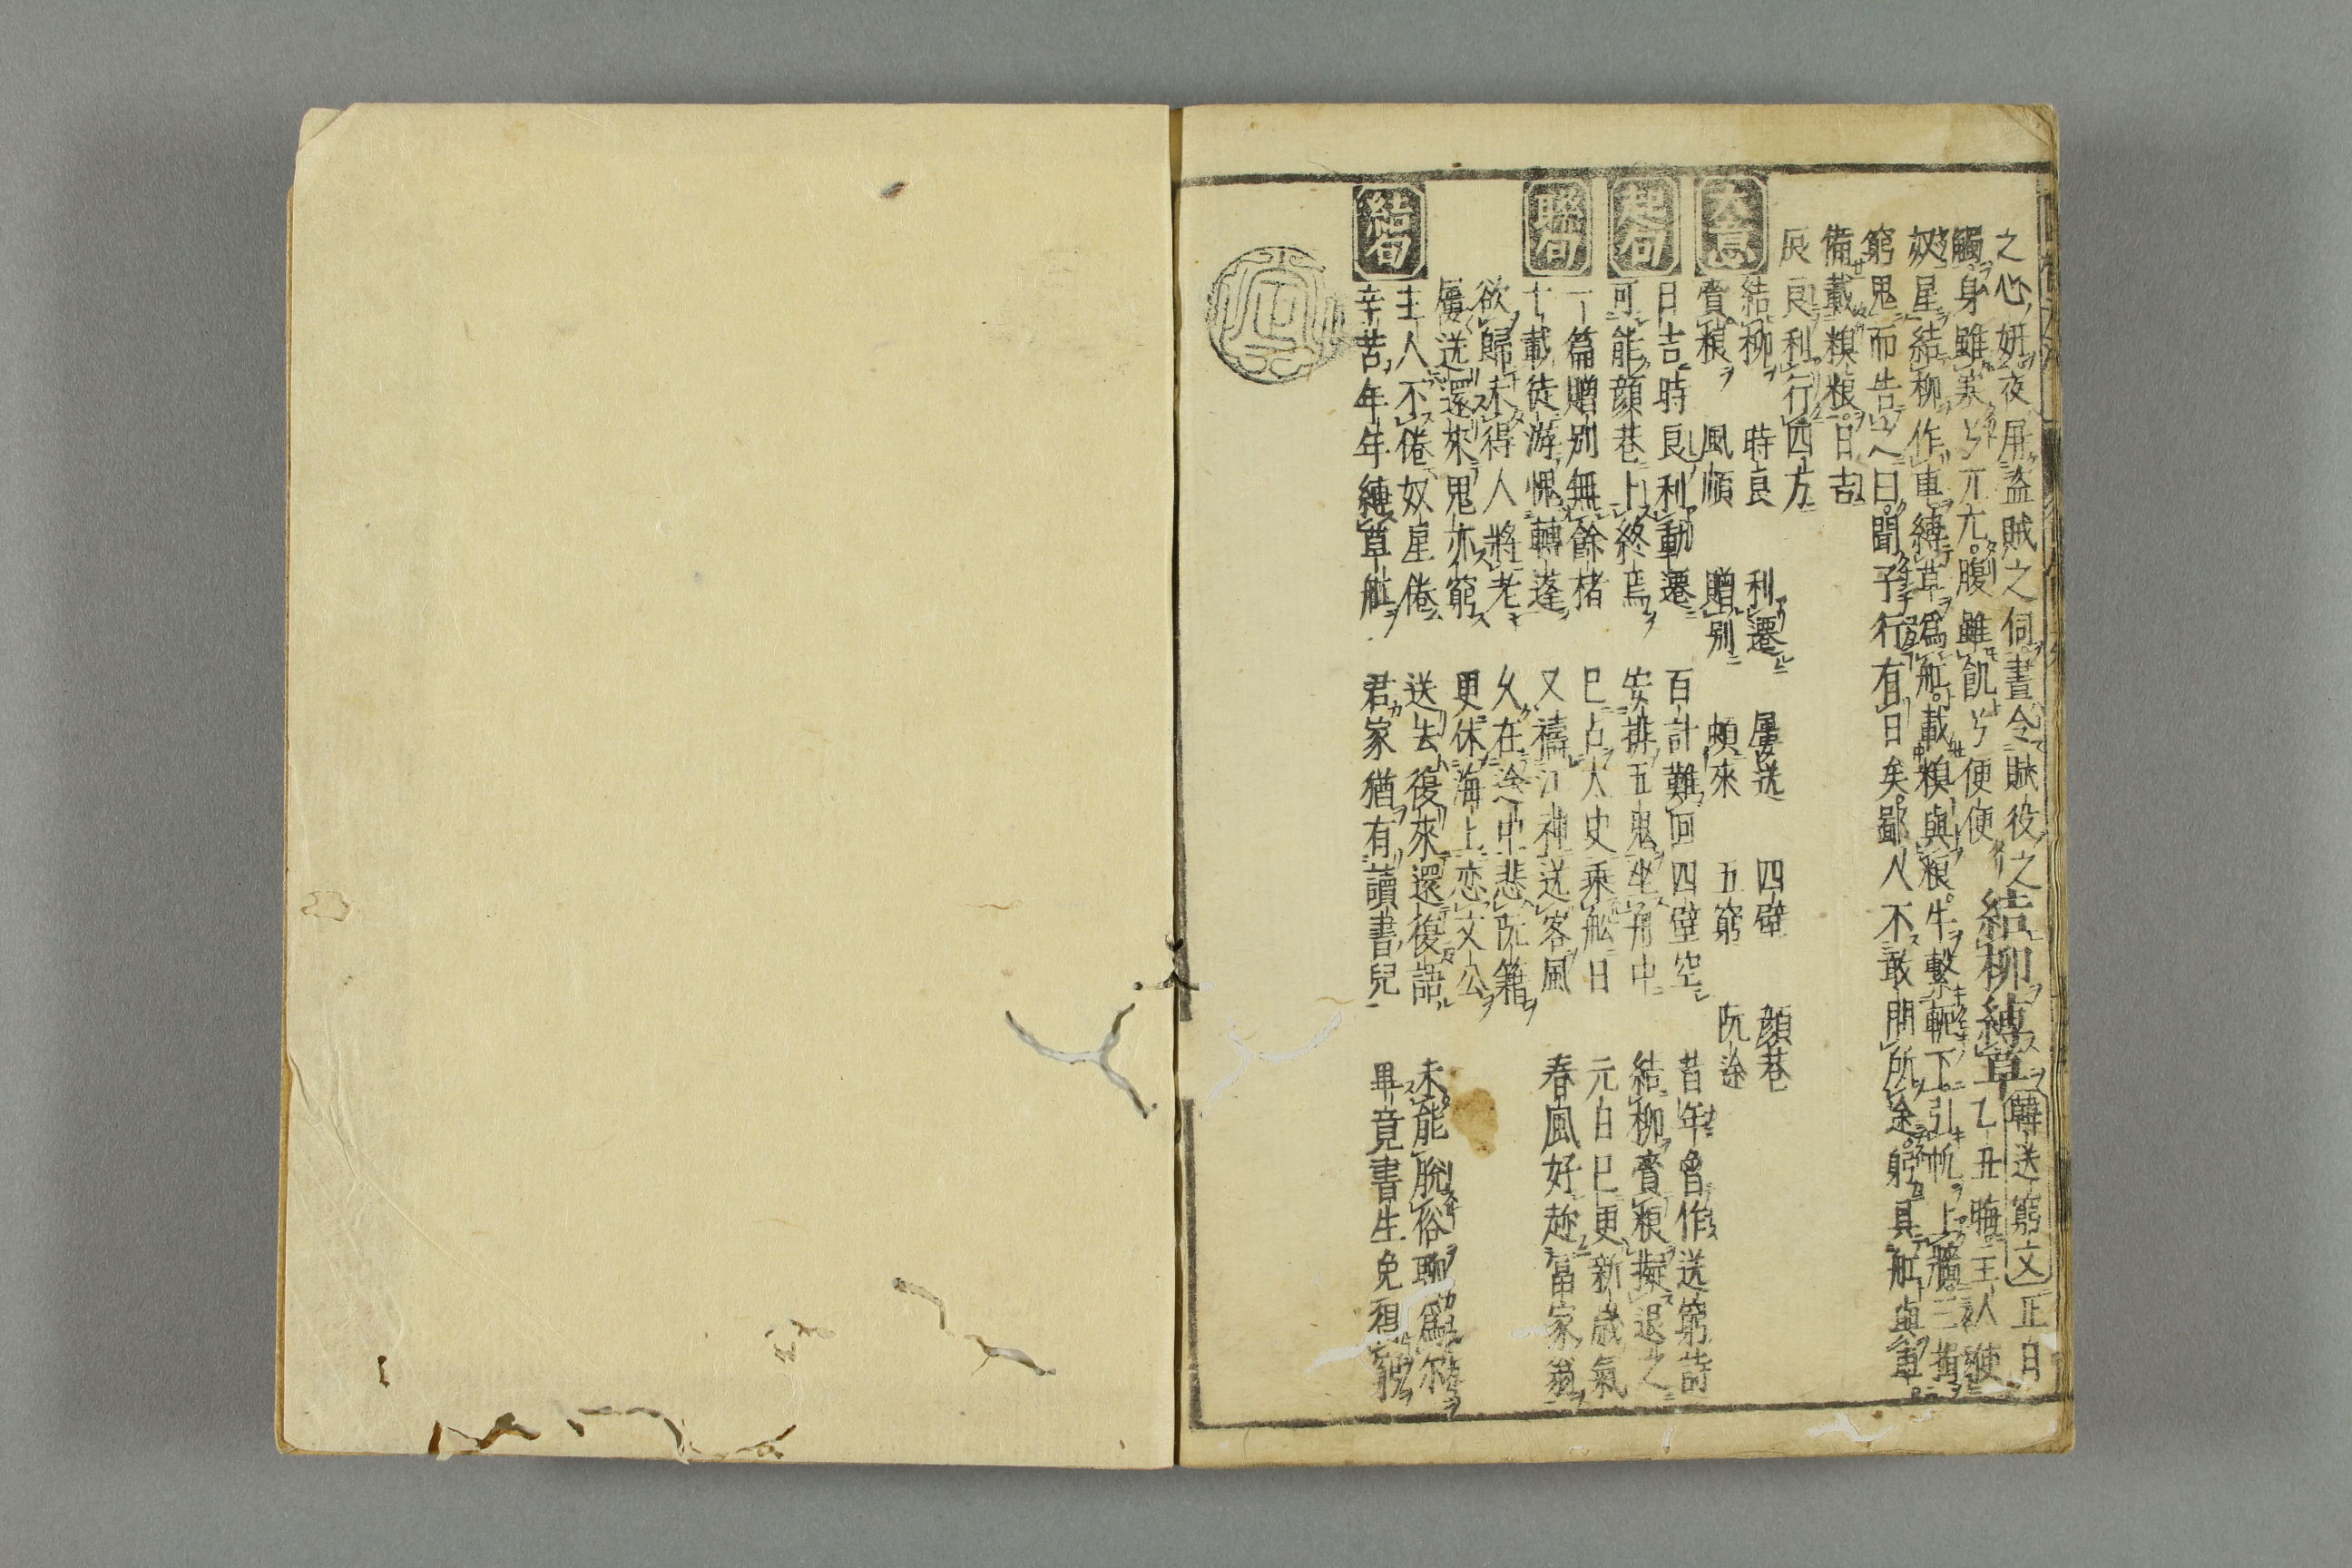 之心妍夜屏盜賊之伺晝令賦役之
觸身雖裘〻亢亢腹雖飢〻便便
結柳縛草
韓送窮文
正月
乙丑晦主人使
奴星結柳作車縛草爲舩載糗與粮牛繫軛下引帆上檣三揖
窮鬼而告之曰聞子行有日矣鄙人不敢問所途躬具舩與車
備載糗粮日吉
辰良利行四方
大意
結柳 時良 利遷 屢送 四壁 顔巷
賚粮 風順 贈別 頻來 五窮 阮途
起句
日吉時良利動遷 百計難回四壁空 昔年曾作送窮詩
可能顔巷上終焉 安排五鬼坐舟中 結柳賚粮擬退之
一篇贈別無餘楮 已占太史乘舩日 元日已更新歳氣
聯句
十載徒游愧轉蓬 又禱江神送客風 春風好趂富家翁
欲歸未得人將老 久在途中悲阮籍
屢送還來鬼亦窮 更休海上恋文公
結句
主人不倦奴星倦 送去復來還復語 未能脱俗聊爲尓
辛苦年年縛草舩 君家猶有讀書兒 畢竟書生免相窮